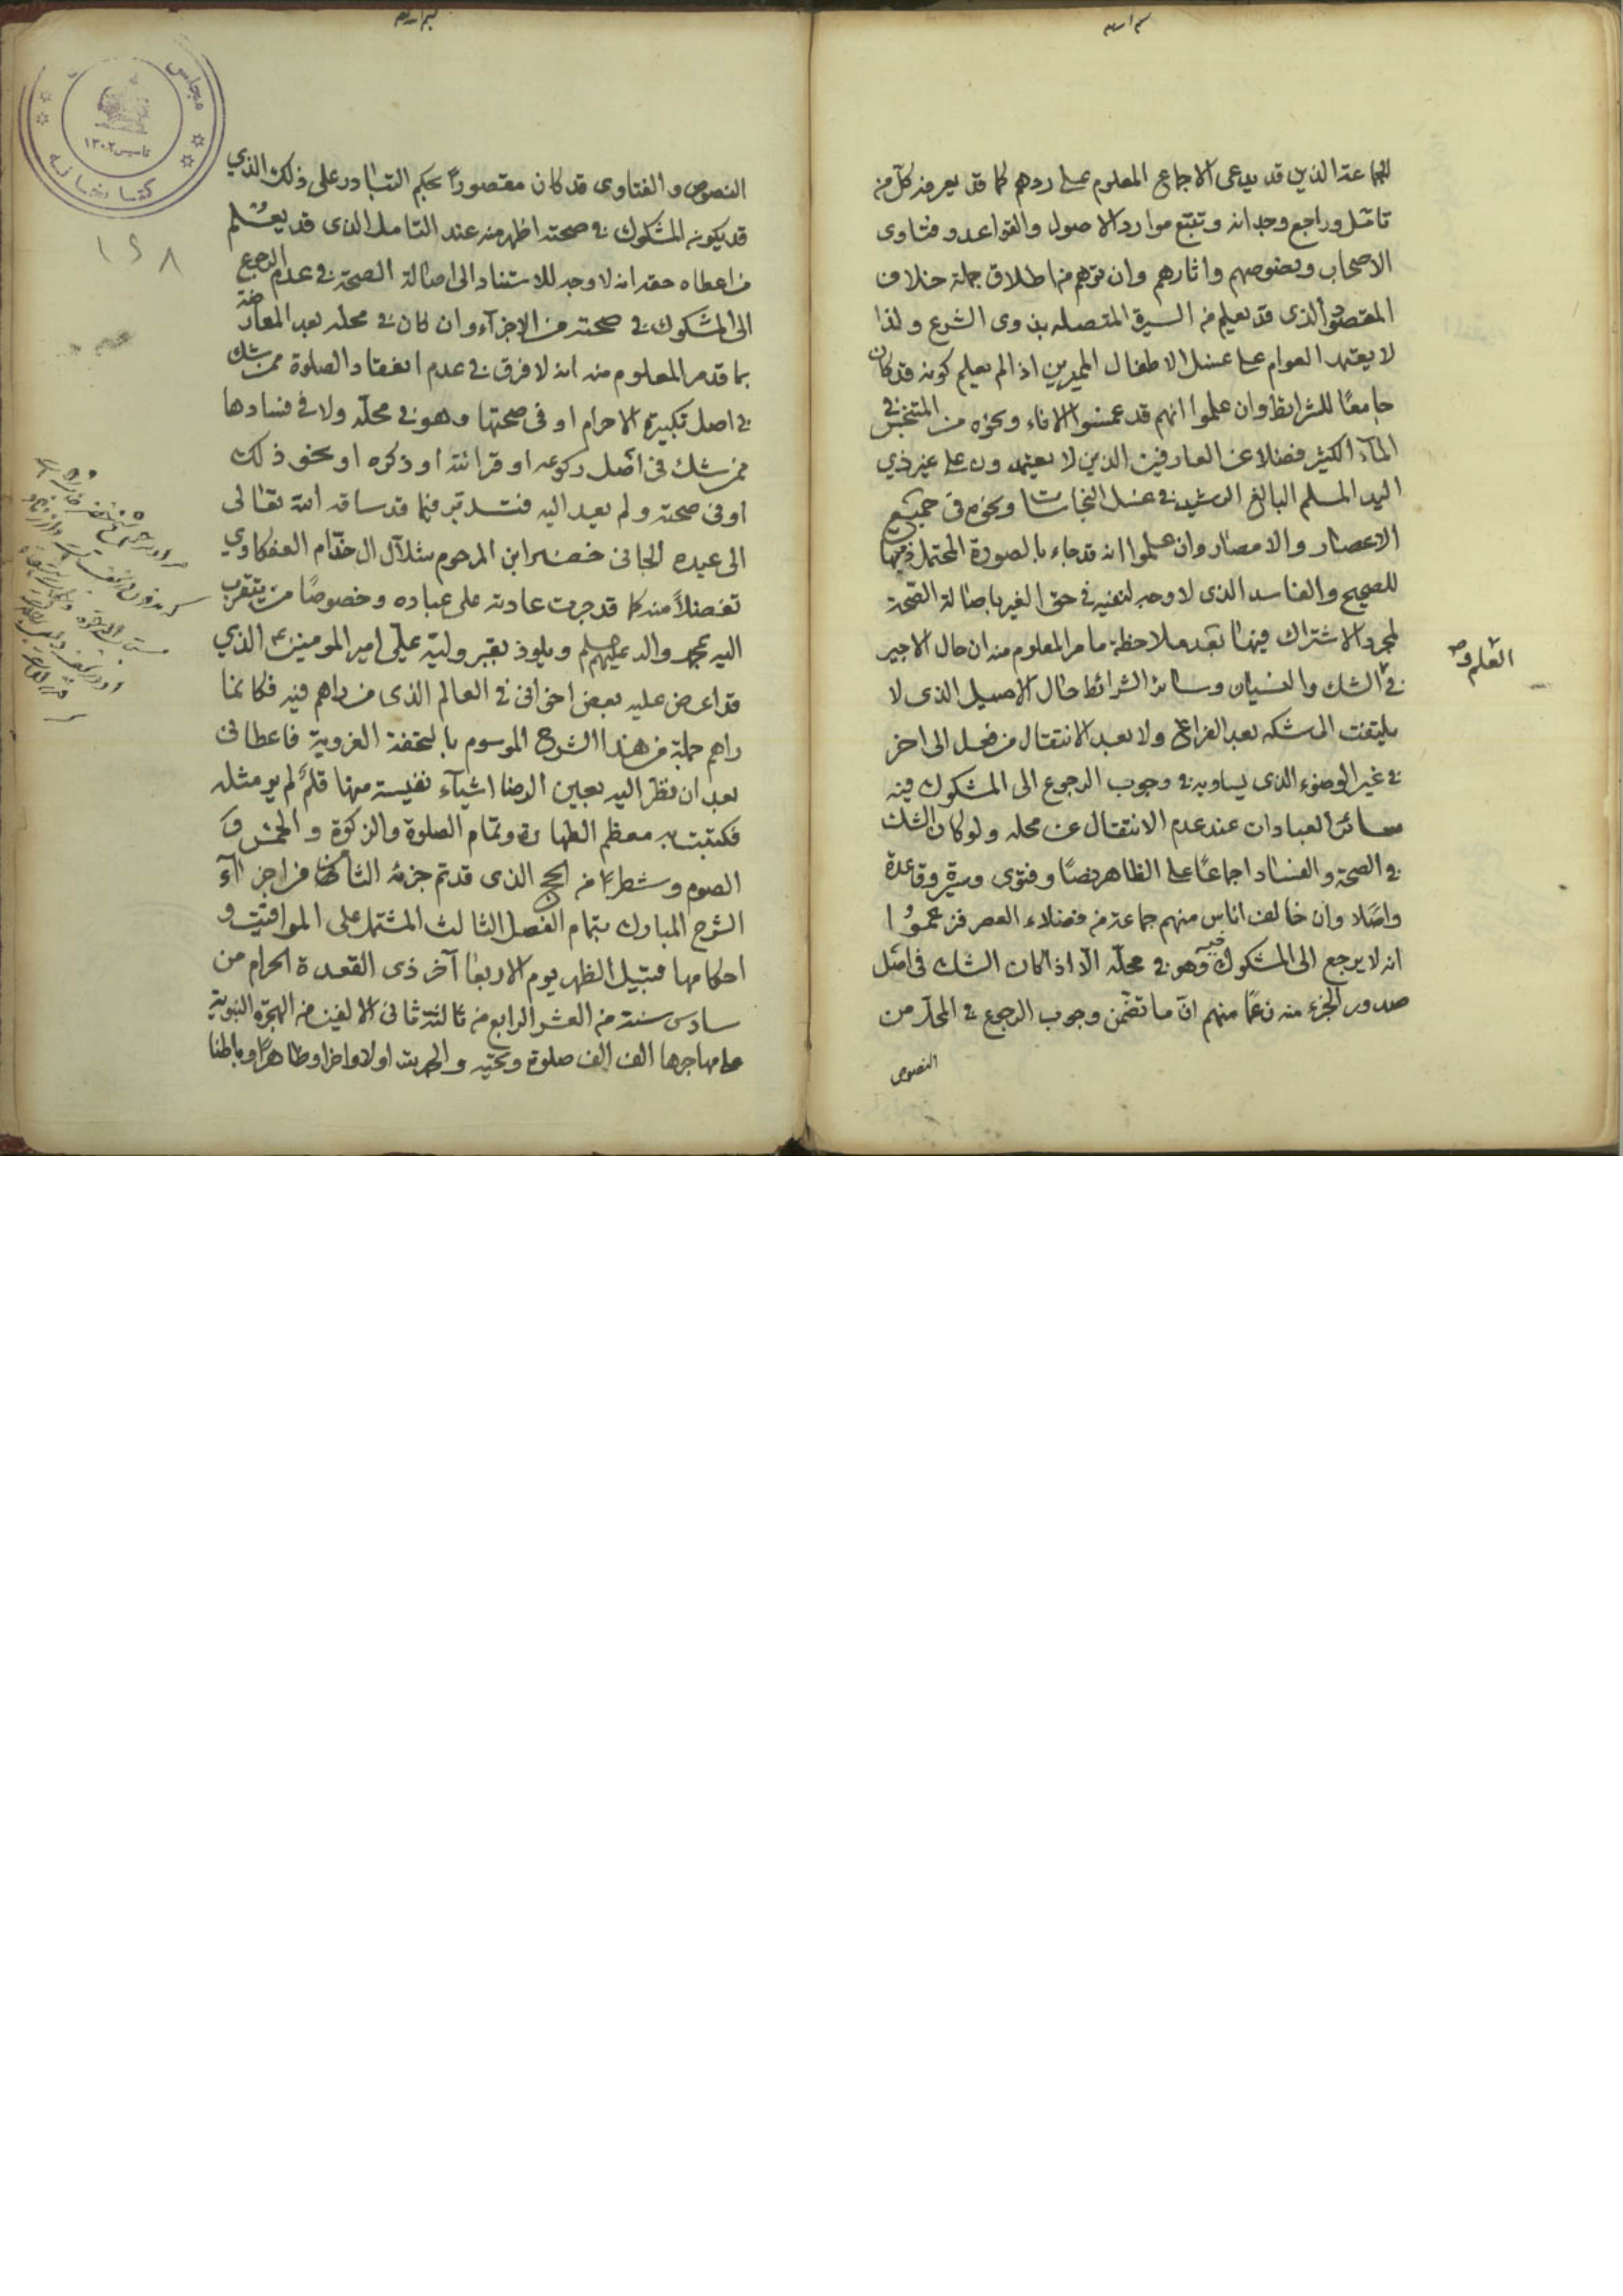 للجماعة الذين قد يدعى الاجماع المعلوم على ردهم كما قد يعرفه كل من
تامل وراجع وجدانه وتتبع موارد الاصول والقواعد وفتاوى
الاصحاب ونصوصهم واثارهم وان توهم من اطلاق جملة خلاف
المقصود الذى قد يعلم من السيرة المتصله بذوى الشرع ولذا
لا يعتمد العوام على غسل الاطفال المميزين اذا لم يعلم كونه قد كان
جامعًا للشرائط وان علموا انهم قد غمسوا الاناء ونحوه من المتنجس في
المآء الكثير فضلا عن العارفين الذين لا يعتمدون على غير ذي
اليد المسلم البالغ الرشيد في غسل النجاسات ونحوه في جميع
الاعصار والامصار وان علموا انه قد جاء بالصورة المحتمل فيها
للصحيح والفاسد الذى لا وجه لنفيه في حق الغير باصالة الصّحة
لمجرد الاشتراك فيها بعد ملاحظة ما مر المعلوم منه ان حال الاجير
في الشك والنسيان وسائر الشرائط حال الاصيل الذى لا
يلتفت الى شكه بعد الفراغ ولا بعد الانتقال من فعل الى اخر
في غير الوضوء الذى يساويه في وجوب الرجوع الى المشكوك فيه
سائر العبادات عند عدم الانتقال عن محله ولو كان الشك
في الصحة والفساد اجماعًا على الظاهر نصًا وفتوى وسيرة وقاعدة
واصلا وان خالف اناس منهم جماعة من فضلاء العصر فزعموا
انه لا يرجع الى المشكوك فيه وهو في محلّه الّا اذا كان الشك في اصل
صدور الجزء منه زعمًا منهم انّ ما تضمّن وجوب الرجوع في المحل من
النصوص
النصوص والفتاوى قد كان مقصورًا بحكم التبادر على ذلك الذي
قد يكون المشكوك في صحته اظهر منه عند التامل الذى قد يعلم
من اعطاه حقه انه لا وجه للاستناد الى اصالة الصحة في عدم الرجوع
الى المشكوك في صحته من الاجزآء وان كان في محله بعد المعارضة
بما قد مر المعلوم منه انه لا فرق في عدم انعقاد الصلوة ممن شك
في اصل تكبيرة الاحرام او في صحتها وهو في محلّه ولا في فسادها
ممن شك في اصل ركوعه او قرائته او ذكره او نحو ذلك
او في صحته ولم يعد اليه فتدبر فيما قد ساقه الله تعالى
الى عبده الجاني خضر ابن المرحوم شلال ال خدّام العفكاوي
تفضلاً منه كما قد جرت عادته على عباده وخصوصًا من يتقرب
اليه بمحمد واله عليهم ويلوذ بقبر وليّه عليّ امير المومنين ع الذي
قد اعرض عليه بعض اخواني في العالم الذى من راهم فيه فكانما
راهم جملة من هذا الشرح الموسوم بالتحفة الغروية فاعطانى
بعد ان نظر اليه بعين الرضا اشيآء نفيسة منها قلم لم ير مثله
فكتبت به معظم الطهارة وتمام الصلوة والزكوة والخمس و
الصوم وشطرًا من الحج الذى قد تم جزئه الثالث من اجزآء
الشرح المبارك بتمام الفصل الثالث المشتمل على المواقيت و
احكامها قبيل الظهر يوم الاربعا آخر ذى القعدة الحرام من
سادس سنة من العشر الرابع من ثالثة ثانى الالفين من الهجرة النبوية
على مهاجرها الف الف صلوة وتحيّه والحمد لله اولا واخرا وظاهرًا وباطنا
مجلس
كتابخانه
تاسيس ١٣٠٢